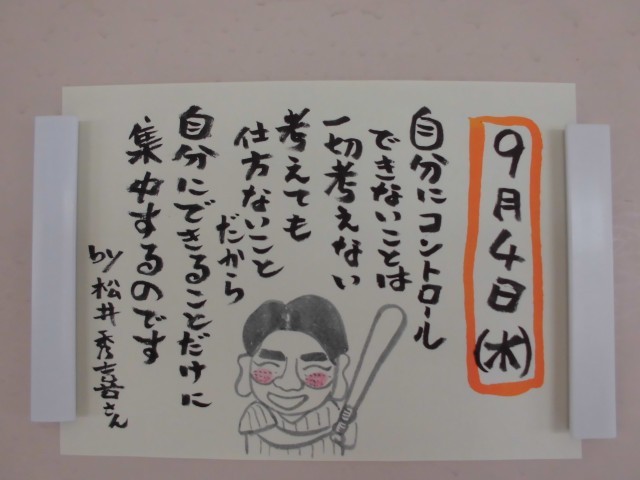 9月4日(水)
自分にコントロール
できないことは
一切考えない
考えても
仕方ないこと
だから
自分にできることだけに
集中するのです
by 松井秀喜さん